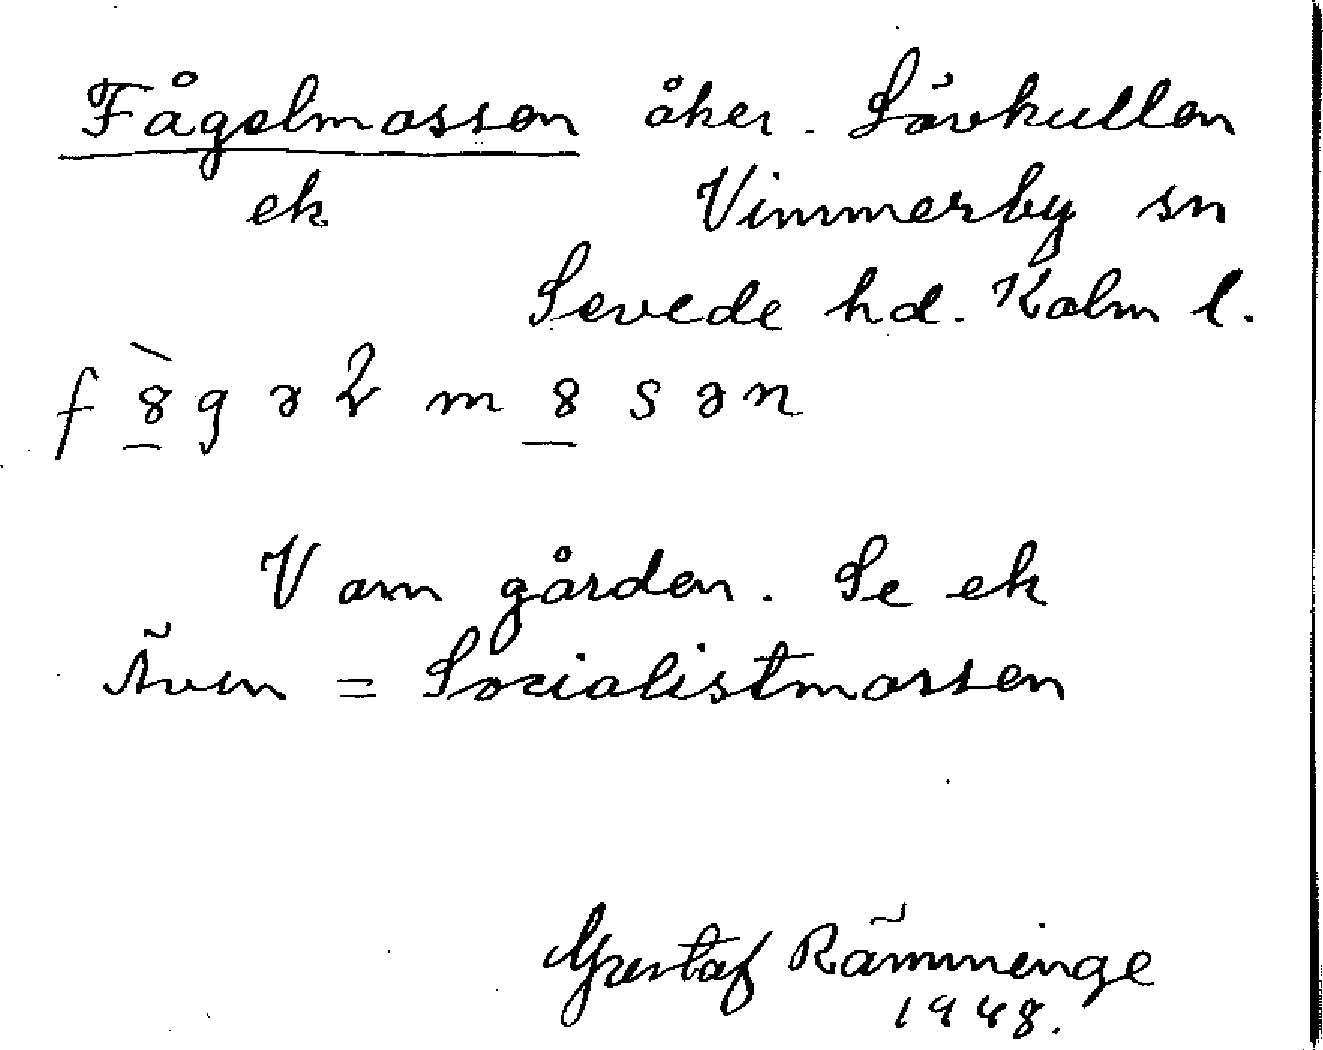 Fågelmossen åker. Lövkullen
ek Vimmerby sn
Sevede hd. Kalm l.
f 8 g ə l m 8 s ə n
V om gården. Se ek
Även = Socialistmossen
Gustaf Rämminge
1948.